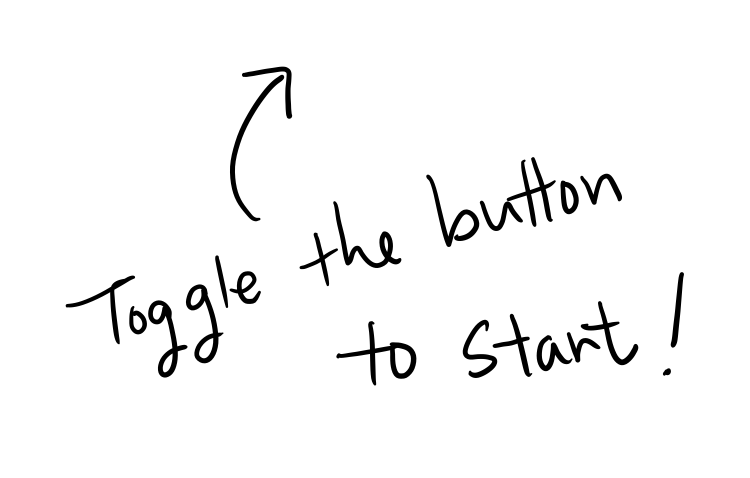 Toggle the button
to start!